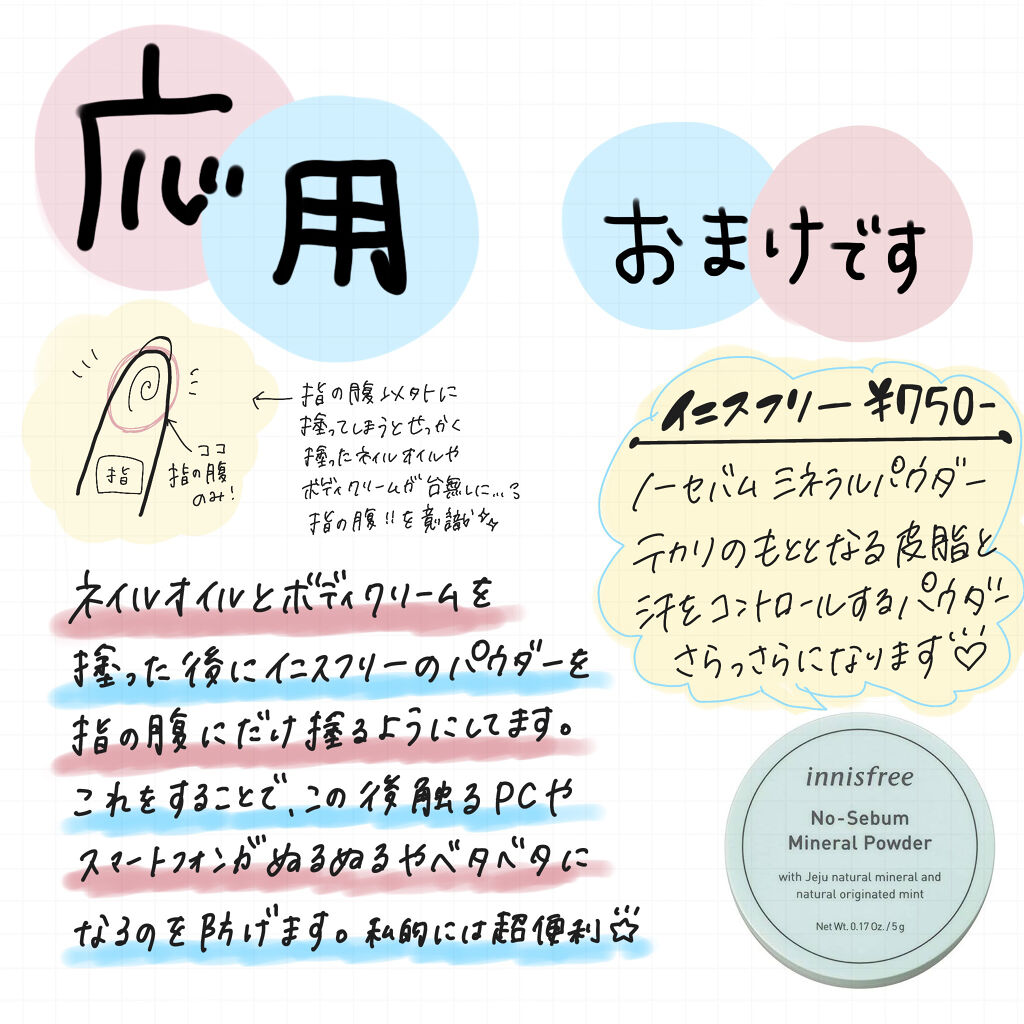 応用
おまけです
指
ココ
指の腹
のみ!
指の腹以外に
塗ってしまうとせっかく
塗ったネイルオイルや
ボディクリームが台無しに...
指の腹!!を意識
ネイルオイルとボディクリームを
塗った後にイニスフリーのパウダーを
指の腹にだけ塗るようにしてます。
これをすることで、この後触るPCや
スマートフォンがぬるぬるやベタベタに
なるのを防げます。私的には超便利☆
イニスフリー ¥750-
ノーセバム ミネラルパウダー
テカリのもととなる皮脂と
汗をコントロールするパウダー
さらっさらになります♡
innisfree
No-Sebum
Mineral Powder
with Jeju natural mineral and
natural originated mint
Net Wt. 0.17 Oz. / 5 g